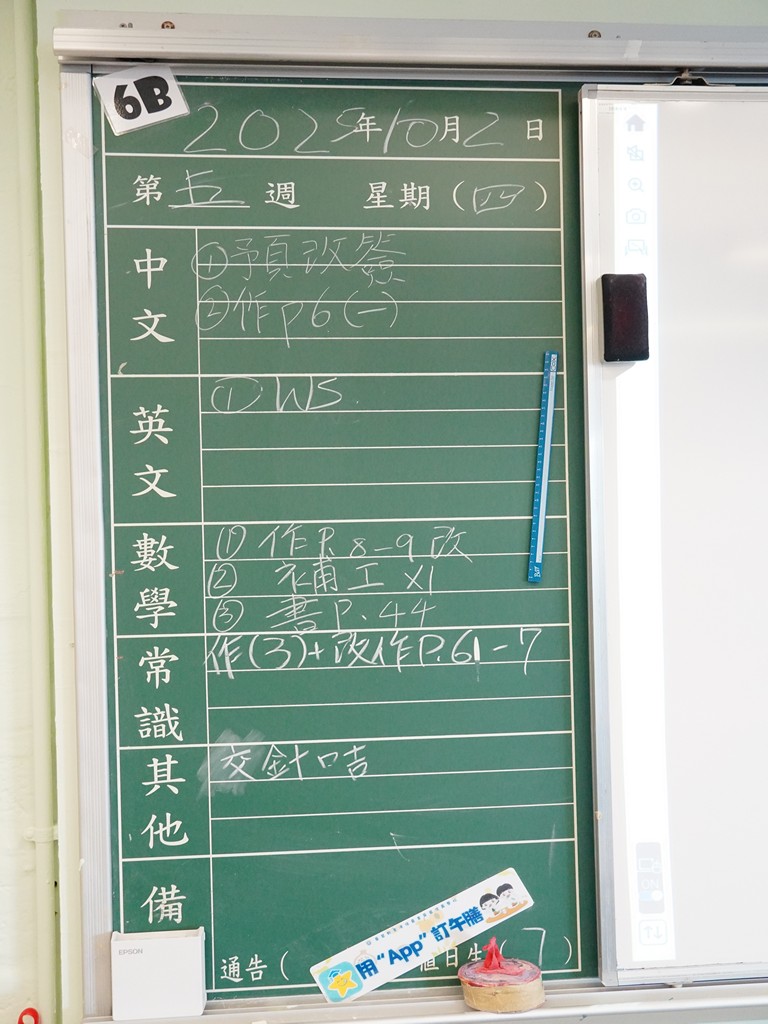 6B
2025年10月2日
第五週 星期(四)
中文
①預改簽
②作p6(一)
英文
① WS.
數學
① 作P.8-9改
② 補工 x1
③ 書P.44
常識
作(3)+改作P.61-7
其他
交針咭
備
用“App”訂午膳
EPSON
通告( 值日生(7)